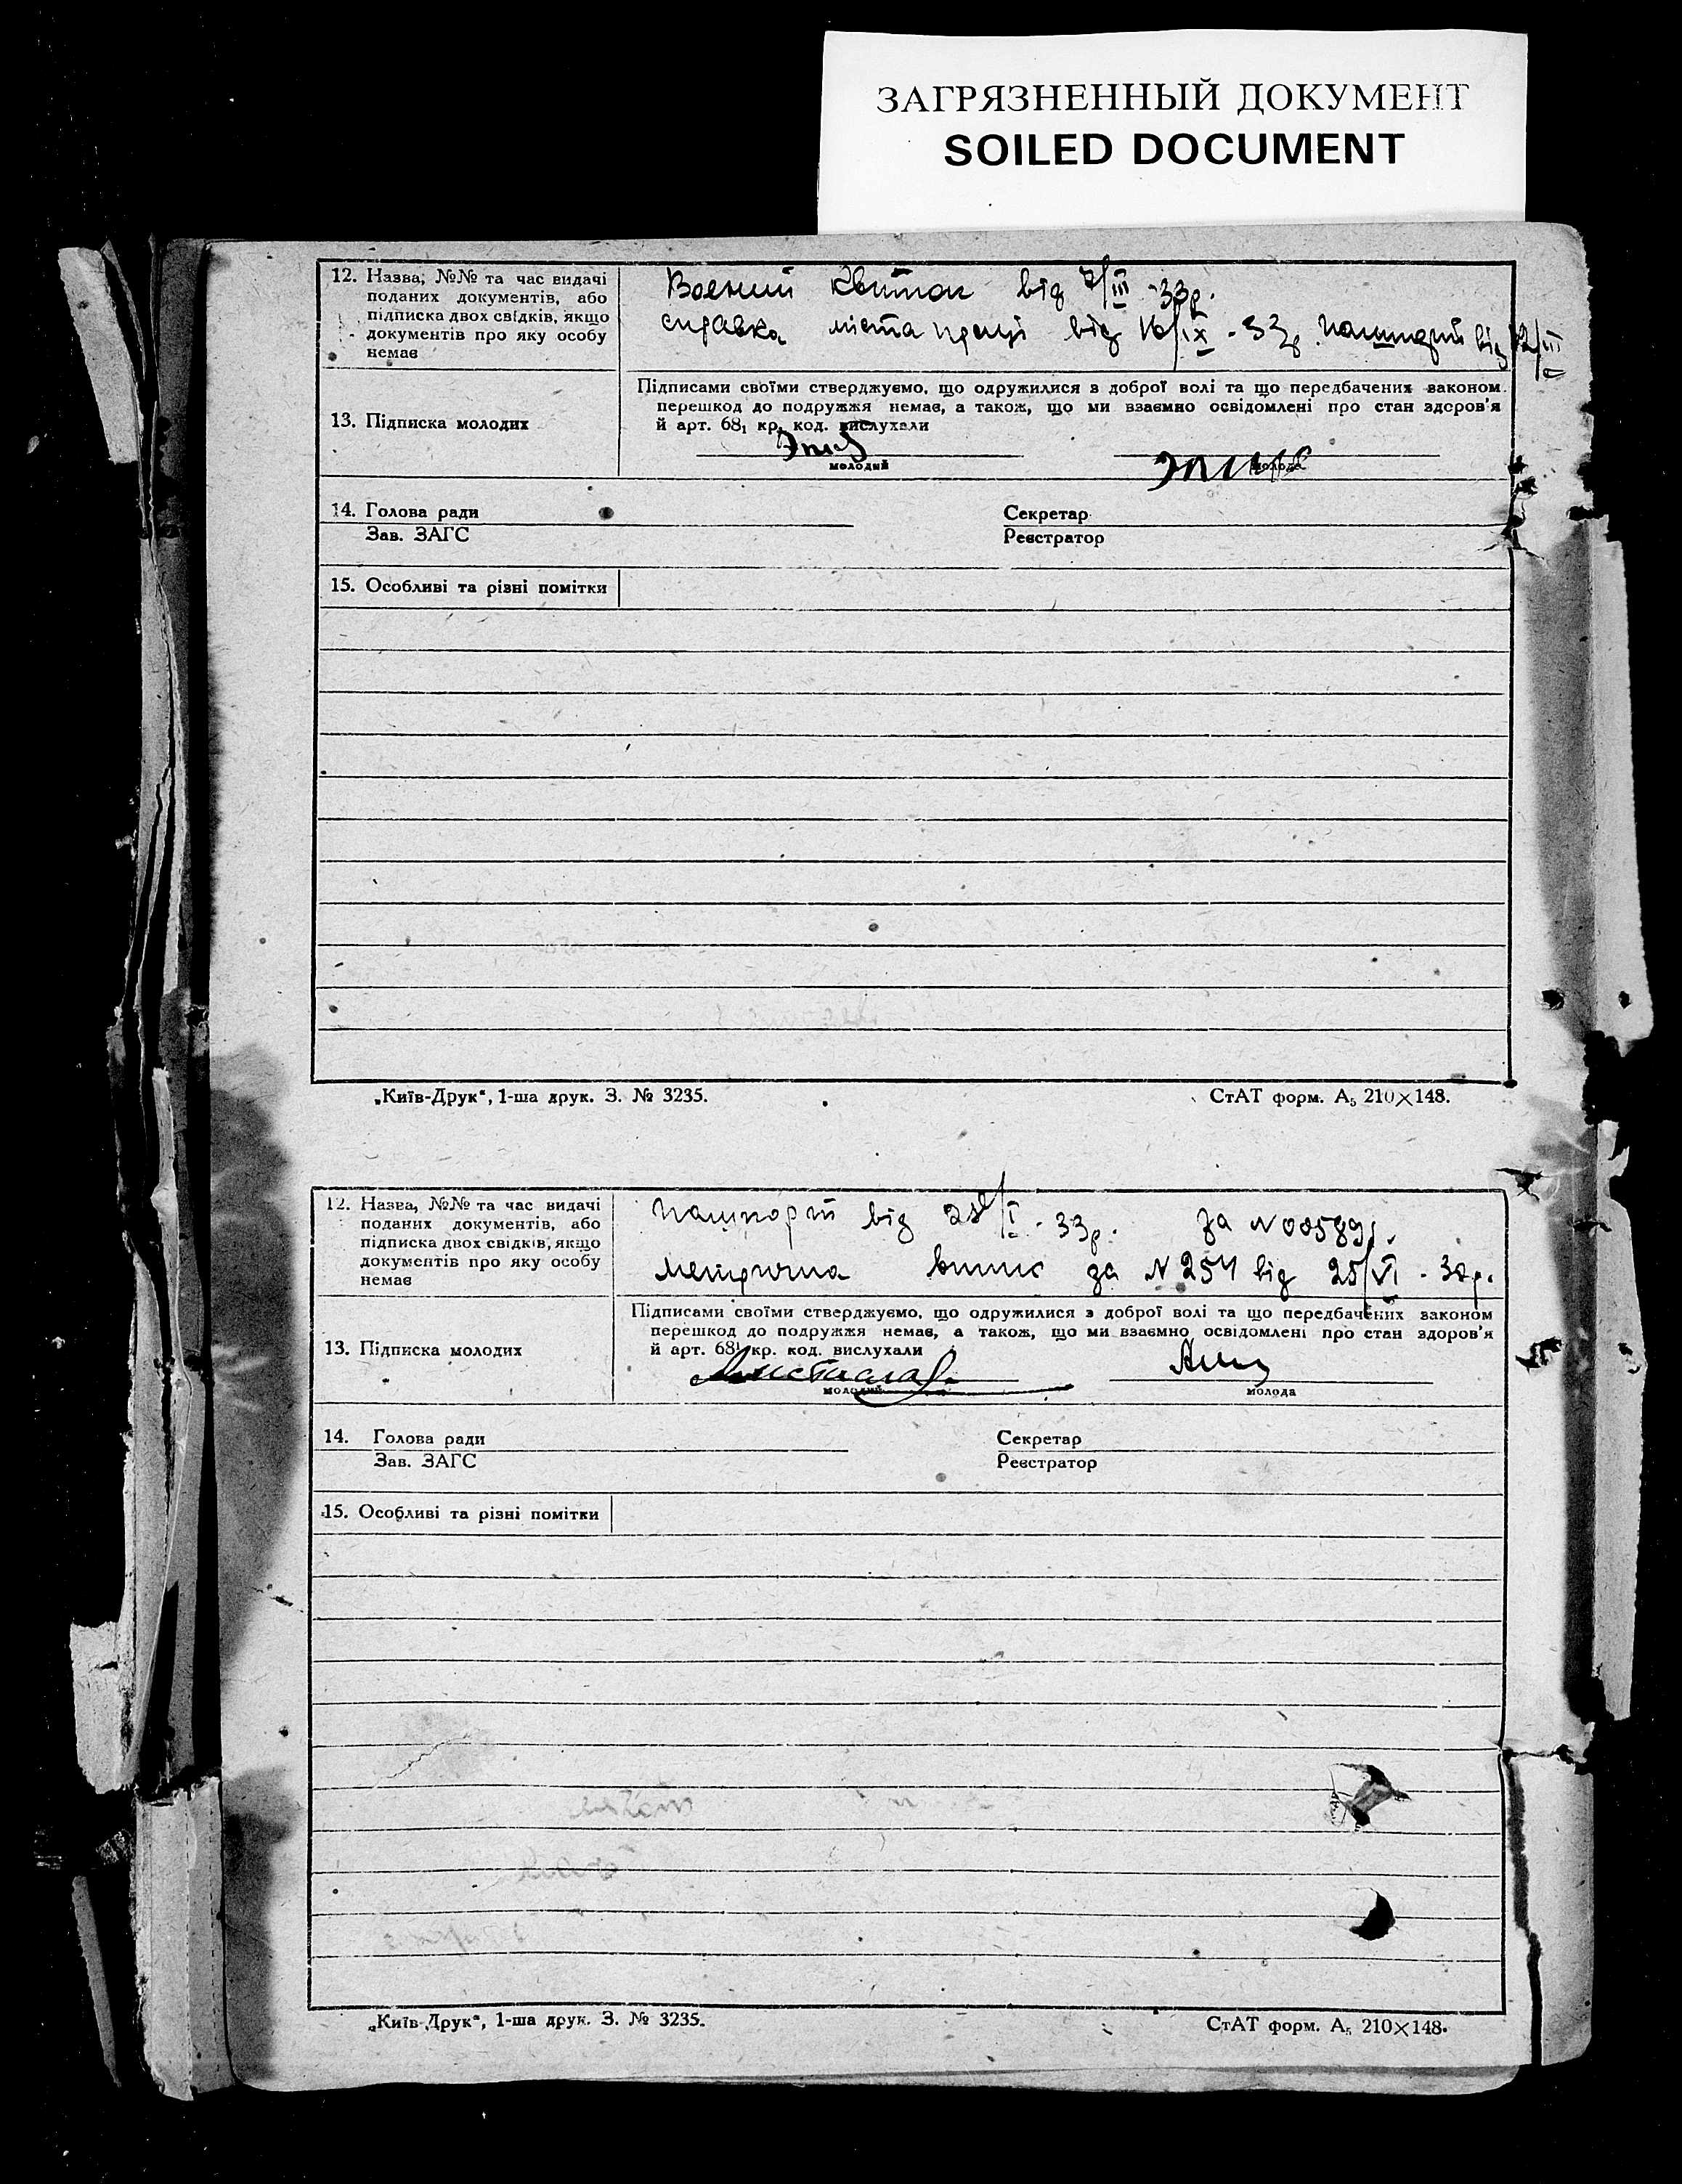 ЗАГРЯЗНЕННЫЙ ДОКУМЕНТ
SOILED DOCUMENT
12. Назва, №№ та час видачі
поданих документів, або
підписка двох свідків, якщо
документів про яку особу
немає
Воєний квиток від 7/III -33р.
справка міста праці від 16/IX - 33р. пашпорт від 12/III
13. Підписка молодих
Підписами своїми стверджуємо, що одружилися з доброї волі та що передбачених законом
перешкод до подружжя немає, а також, що ми взаємно освідомлені про стан здоров'я
й арт. 68₁ кр. код. вислухали
молодий
молода
14. Голова ради
Зав. ЗАГС
Секретар
Реєстратор
15. Особливі та різні помітки
„Київ-Друк“, 1-ша друк. З. № 3235.
СтАТ форм. А₅ 210×148.
12. Назва, №№ та час видачі
поданих документів, або
підписка двох свідків, якщо
документів про яку особу
немає
пашпорт від /I - 33р. за N 00589
метрична випис за N 254 від 25/VI - р.
13. Підписка молодих
Підписами своїми стверджуємо, що одружилися з доброї волі та що передбачених законом
перешкод до подружжя немає, а також, що ми взаємно освідомлені про стан здоров'я
й арт. 68¹ кр. код. вислухали
молодий
молода
14. Голова ради
Зав. ЗАГС
Секретар
Реєстратор
15. Особливі та різні помітки
„Київ-Друк“, 1-ша друк. З. № 3235.
СтАТ форм. А₅ 210×148.